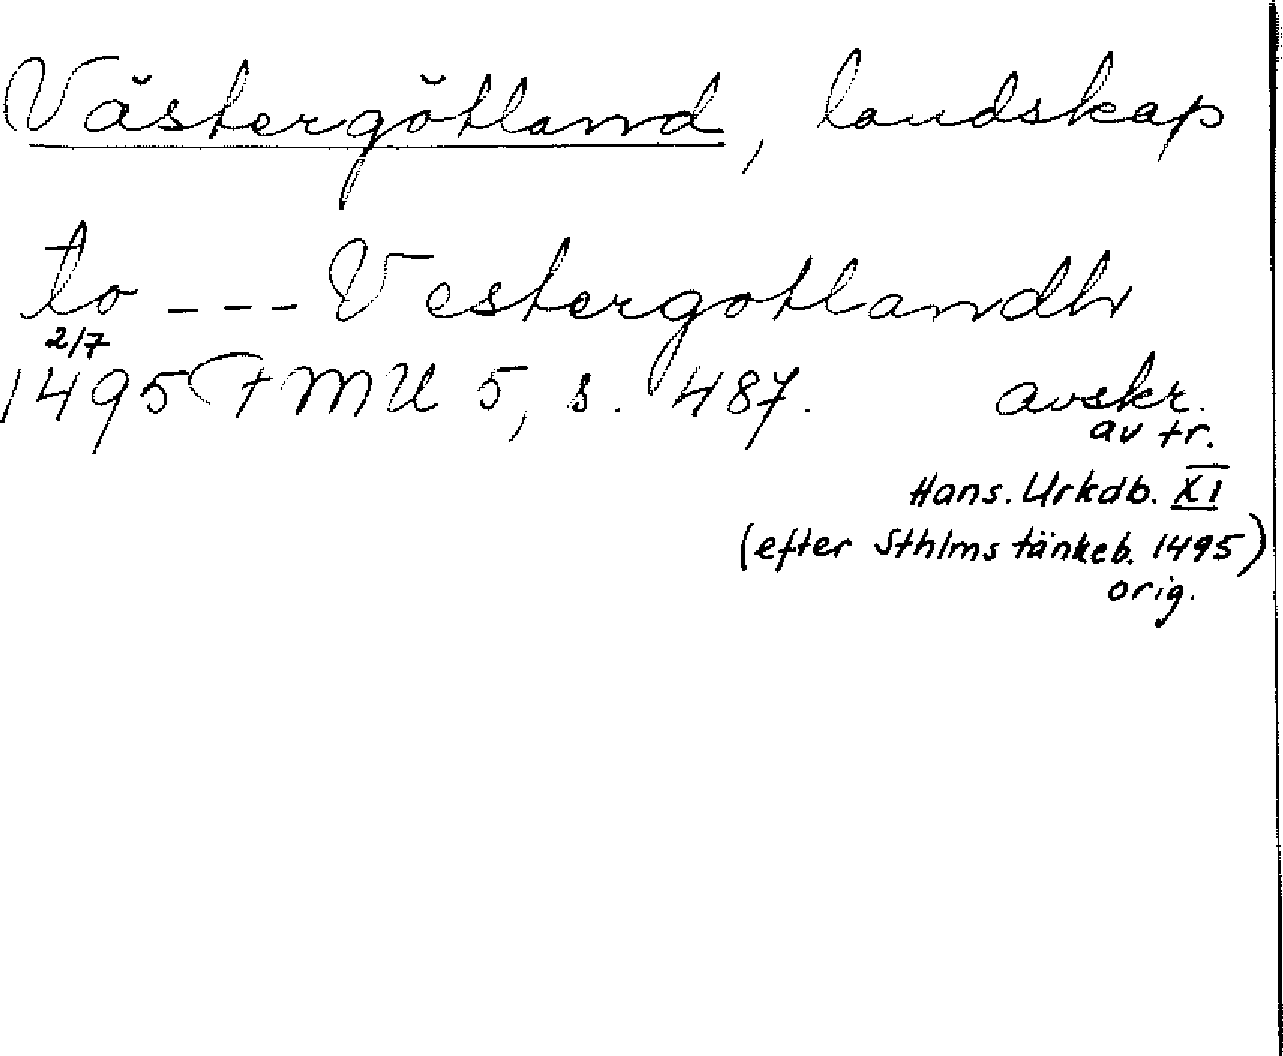 Västergötland, landskap
to --- Vestergotlandh
2/7
1495 FMU 5, s. 487. avskr.
av tr.
Hans. Urkdb. XI
(efter Sthlms tänkeb. 1495)
orig.